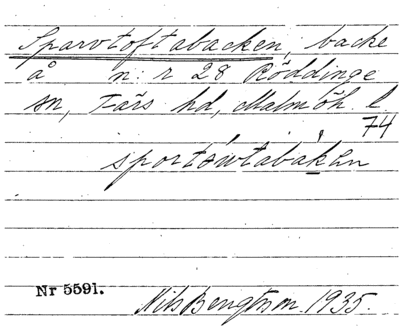 Sparvtoftabacken, backe
å n:r 28 Röddinge
sn, Färs hd, Malmöh. l
74
sportówtabakan
Nr 5591.
Nils Bengtson. 1935.